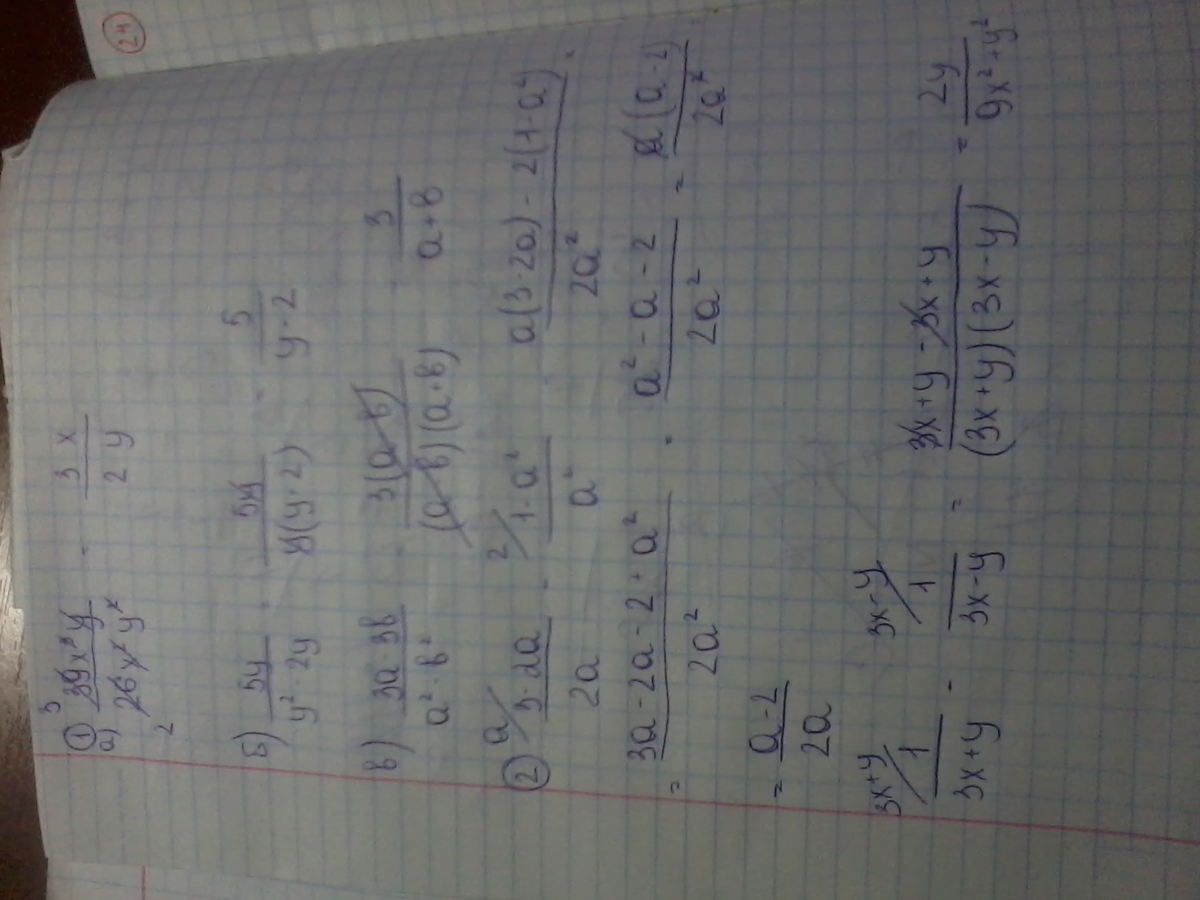 24
① а) 39x³y / 26x²y² = 3x / 2y
б) 5y / y² - 2y = 5y / y(y - 2) = 5 / y - 2
в) 3a - 3в / a² - в² = 3(a - в) / (a - в)(a + в) = 3 / a + в
② a/ 3 - 2a / 2a - 2/ 1 - a² / a² = a(3 - 2a) - 2(1 - a²) / 2a² =
= 3a - 2a - 2 + a² / 2a² = a² - a - 2 / 2a² = a(a - 2) / 2a²
= a - 2 / 2a
3x+y/ 1 / 3x+y - 3x-y/ 1 / 3x-y = 3x+y - 3x+y / (3x+y)(3x-y) = 2y / 9x²+y²